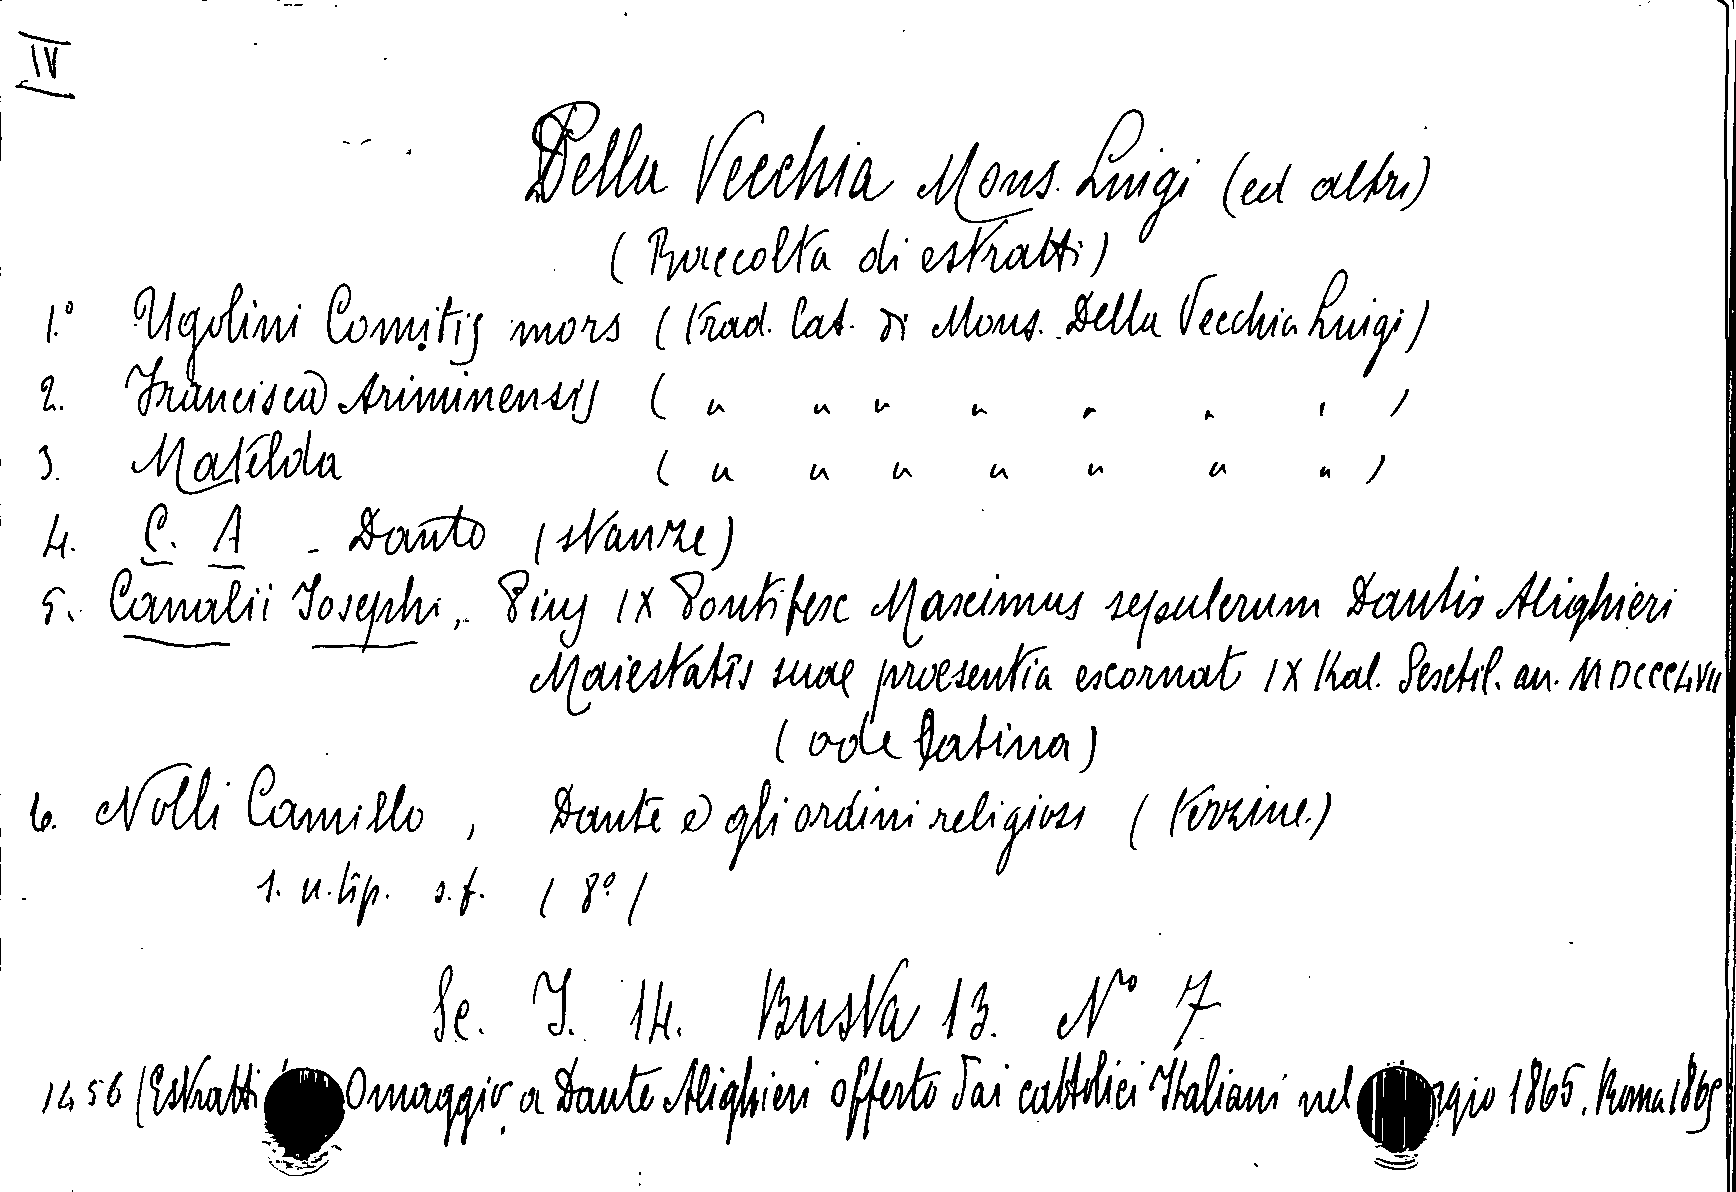 IV
Della Vecchia Mons. Luigi (ed altri)
(Raccolta di estratti)
1.° Ugolini Comitis mors (trad. lat. di Mons. Della Vecchia Luigi)
2. Francisca Ariminensis ( " " " " " " " )
3. Matelda ( " " " " " " " )
4. C. A - Dante (stanze)
5. Canalii Josephi, Pius IX Pontifex Maximus sepulcrum Dantis Alighieri
Maiestatis suae praesentia exornat IX Kal. Sextil. an. MDCCCLVII
(ode latina)
6. Nolli Camillo, Dante e gli ordini religiosi (terzine)
s. n. tip. s. f. (8°)
Sc. I. 14. Busta 13. N° 7
1456 (Estratti Omaggio a Dante Alighieri offerto dai cattolici Italiani nel 1865. Roma 1865